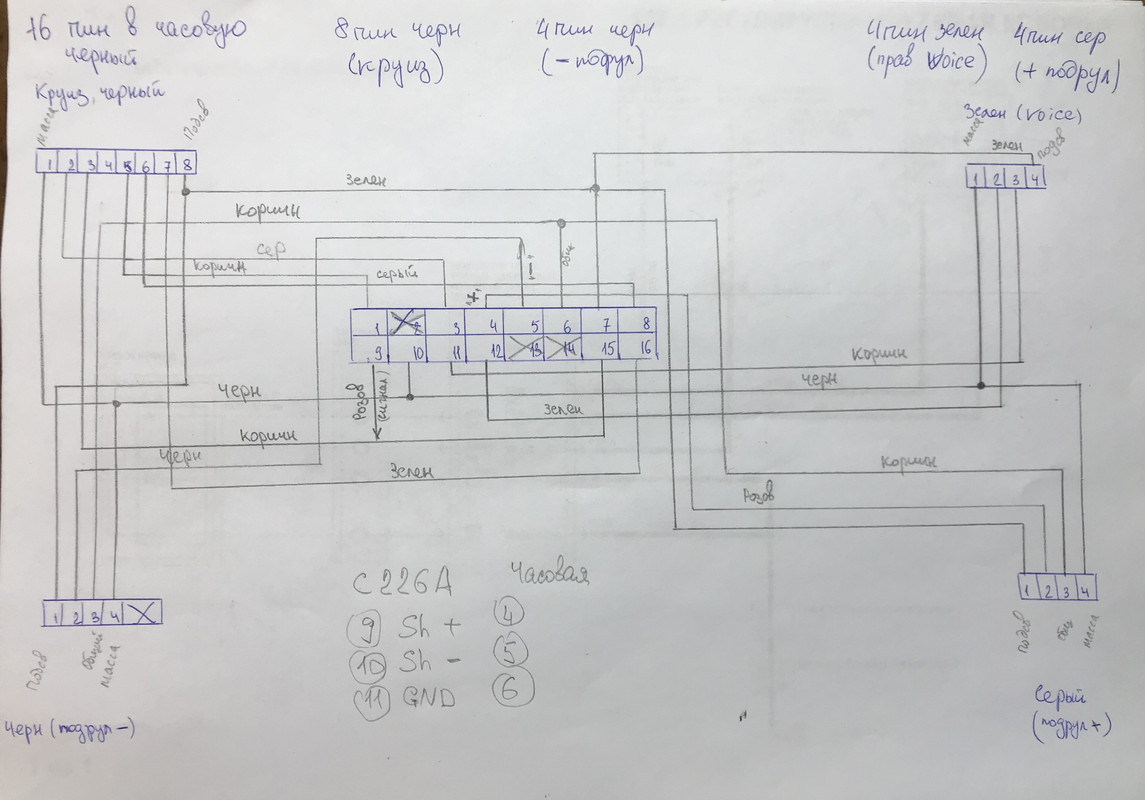 16 пин в часовую
черный
8 пин черн
(круиз)
4 пин черн
(- подрул)
4 пин зелен
(прав Voice)
4 пин сер
(+ подрул)
Круиз, черный
масса
Подсв
1 2 3 4 5 6 7 8
Зелен (Voice)
масса
зелен
подсв
1 2 3 4
зелен
коричн
сер
коричн
серый
"+"
"-"
общ
1 2 3 4 5 6 7 8
9 10 11 12 13 14 15 16
Розов
(сигнал)
коричн
черн
черн
зелен
коричн
черн
Зелен
коричн
Розов
1 2 3 4 X
Подсв
общий
масса
Черн (подрул -)
С 226А Часовая
9 Sh + 4
10 Sh - 5
11 GND 6
1 2 3 4
Подсв
общ
масса
Серый
(подрул +)